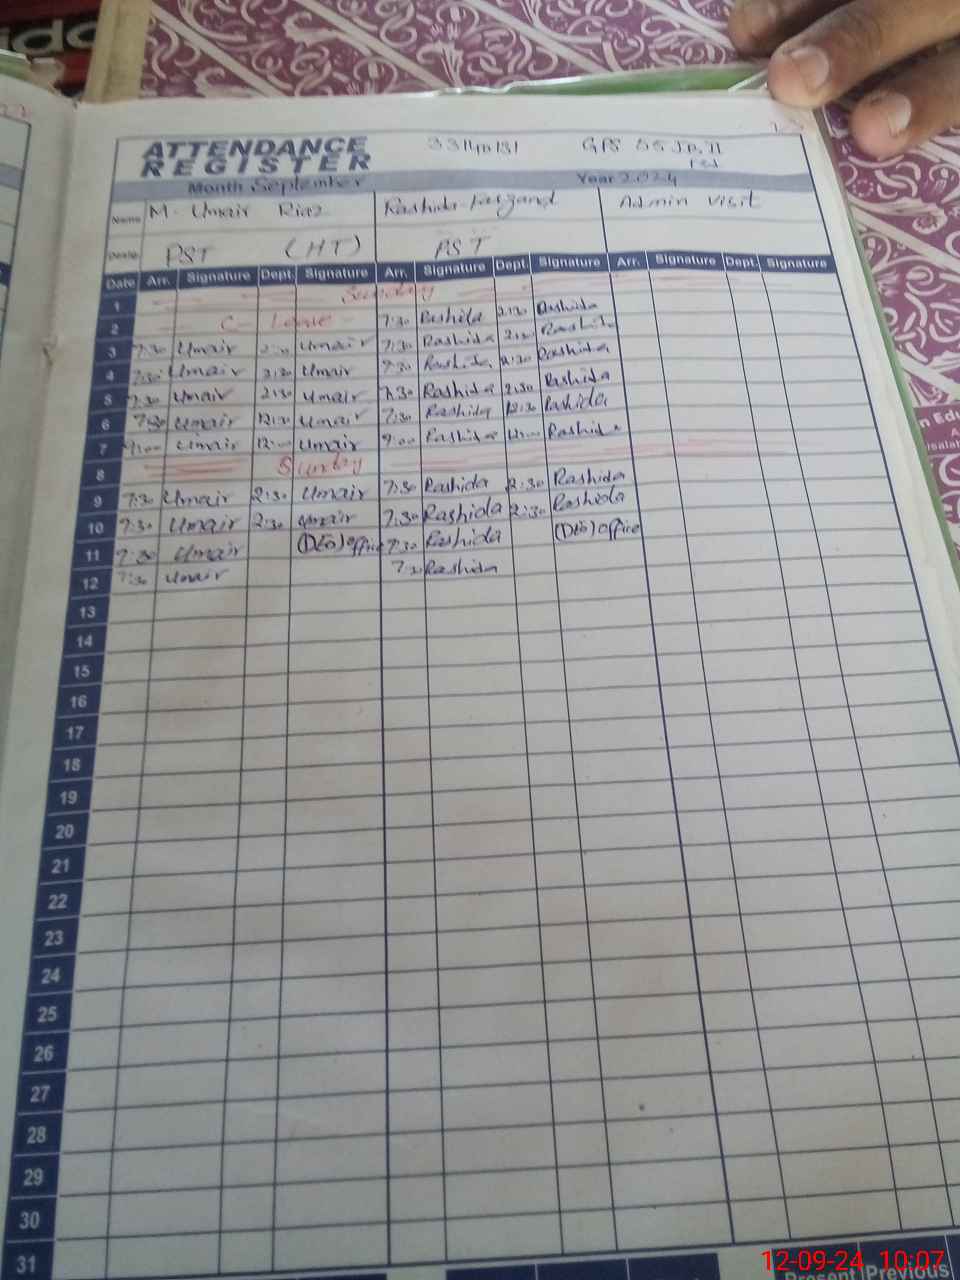 ATTENDANCE 33140131 GPS 55 JB. II
REGISTER
Month September Year 2024
Name M. Umair Riaz Rashida Farzand Admin visit
PST (HT) PST
Date Arr. Signature Dept. Signature Arr. Signature Dept Signature Arr. Signature Dept. Signature
1 Sunday
2 C. Leave 7:30 Rashida 2:30 Rashida
3 7:30 Umair 2:30 Umair 7:30 Rashida 2:30 Rashida
4 7:30 Umair 2:30 Umair 7:30 Rashida 2:30 Rashida
5 7:30 Umair 2:30 Umair 7:30 Rashida 2:30 Rashida
6 7:30 Umair 12:30 Umair 7:30 Rashida 12:30 Rashida
7 9:00 Umair 12:00 Umair 9:00 Rashida 12:00 Rashida
8 Sunday
9 7:30 Umair 2:30 Umair 7:30 Rashida 2:30 Rashida
10 7:30 Umair 2:30 Umair 7:30 Rashida 2:30 Rashida
11 7:30 Umair (DEO) office 7:30 Rashida (DEO) office
12 7:30 Umair 7:30 Rashida
13
14
15
16
17
18
19
20
21
22
23
24
25
26
27
28
29
30
31
Present Previous
12-09-24 10:07